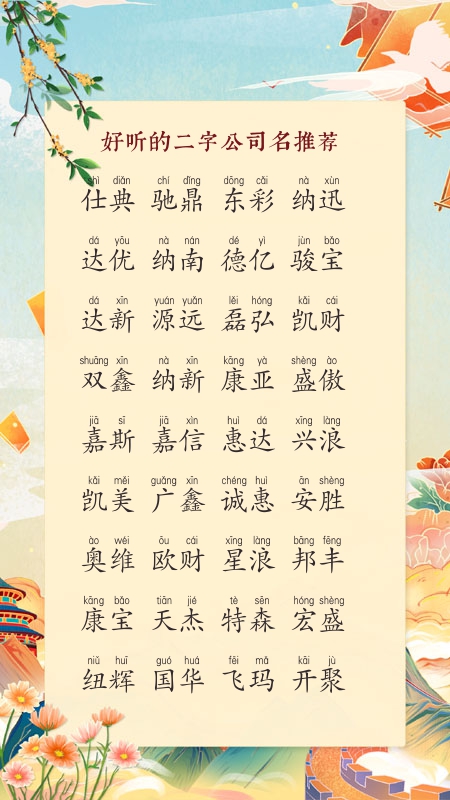 好听的二字公司名推荐
shì diǎn chí dǐng dōng cǎi nà xùn
仕典 驰鼎 东彩 纳迅
dá yōu nà nán dé yì jùn bǎo
达优 纳南 德亿 骏宝
dá xīn yuán yuǎn lěi hóng kǎi cái
达新 源远 磊弘 凯财
shuāng xīn nà xīn kāng yà shèng ào
双鑫 纳新 康亚 盛傲
jiā sī jiā xìn huì dá xīng làng
嘉斯 嘉信 惠达 兴浪
kǎi měi guǎng xīn chéng huì ān shèng
凯美 广鑫 诚惠 安胜
ào wéi ōu cái xīng làng bāng fēng
奥维 欧财 星浪 邦丰
kāng bǎo tiān jié tè sēn hóng shèng
康宝 天杰 特森 宏盛
niǔ huī guó huá fēi mǎ kāi jù
纽辉 国华 飞玛 开聚